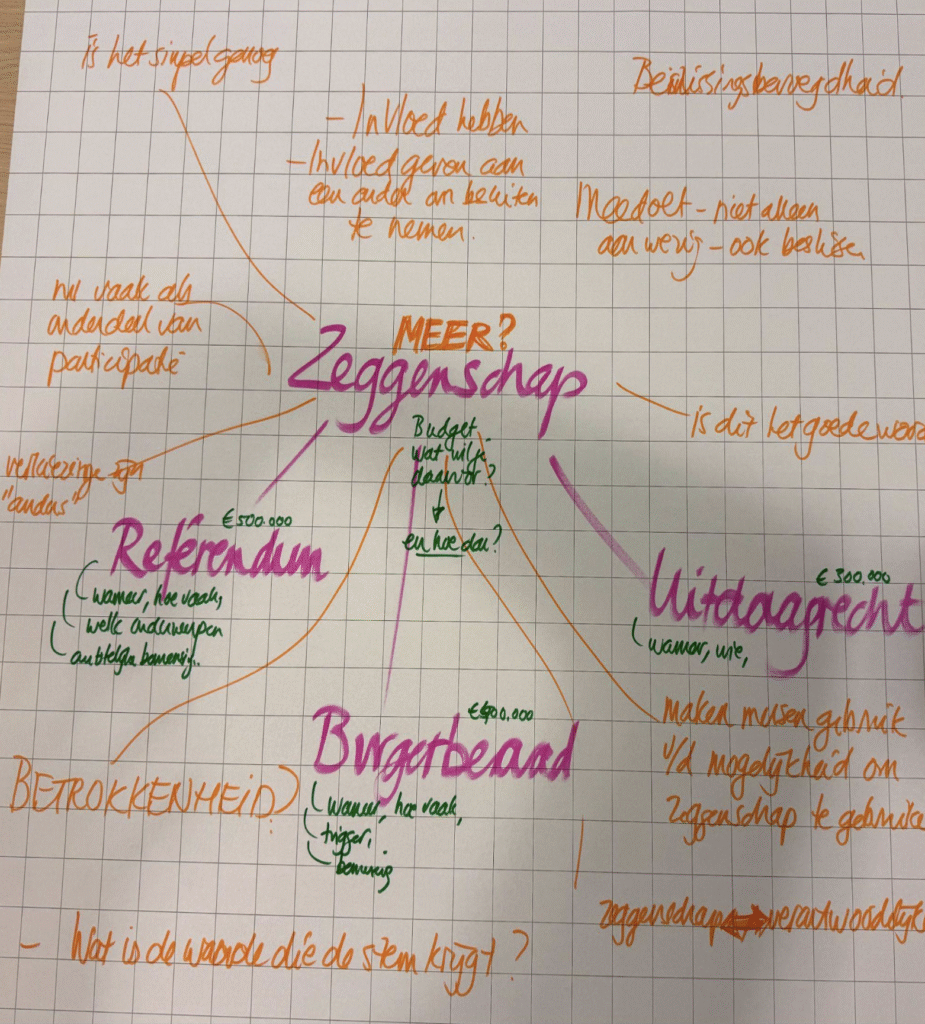 is het simpel genoeg
Beslissingsbevoegdheid.
- Invloed hebben
- Invloed geven aan
een ander om besluiten
te nemen.
Meedoet - niet alleen
aanwezig - ook beslissen
nu vaak als
onderdeel van
participatie
MEER?
Zeggenschap
is dit het goede woord
Budget
wat wil je
daarvoor?
en hoe dan?
"anders"
€500.000
Referendum
wanneer, hoe vaak,
welk onderwerpen
€300.000
Uitdaagrecht
wanneer, wie,
€400.000
Burgerberaad
wanneer, hoe vaak,
trigger,
bemensing
BETROKKENHEID?
maken mensen gebruik
v/d mogelijkheid om
zeggenschap te gebruiken
zeggenschap verantwoordelijk
- Wat is de waarde die de stem krijgt?